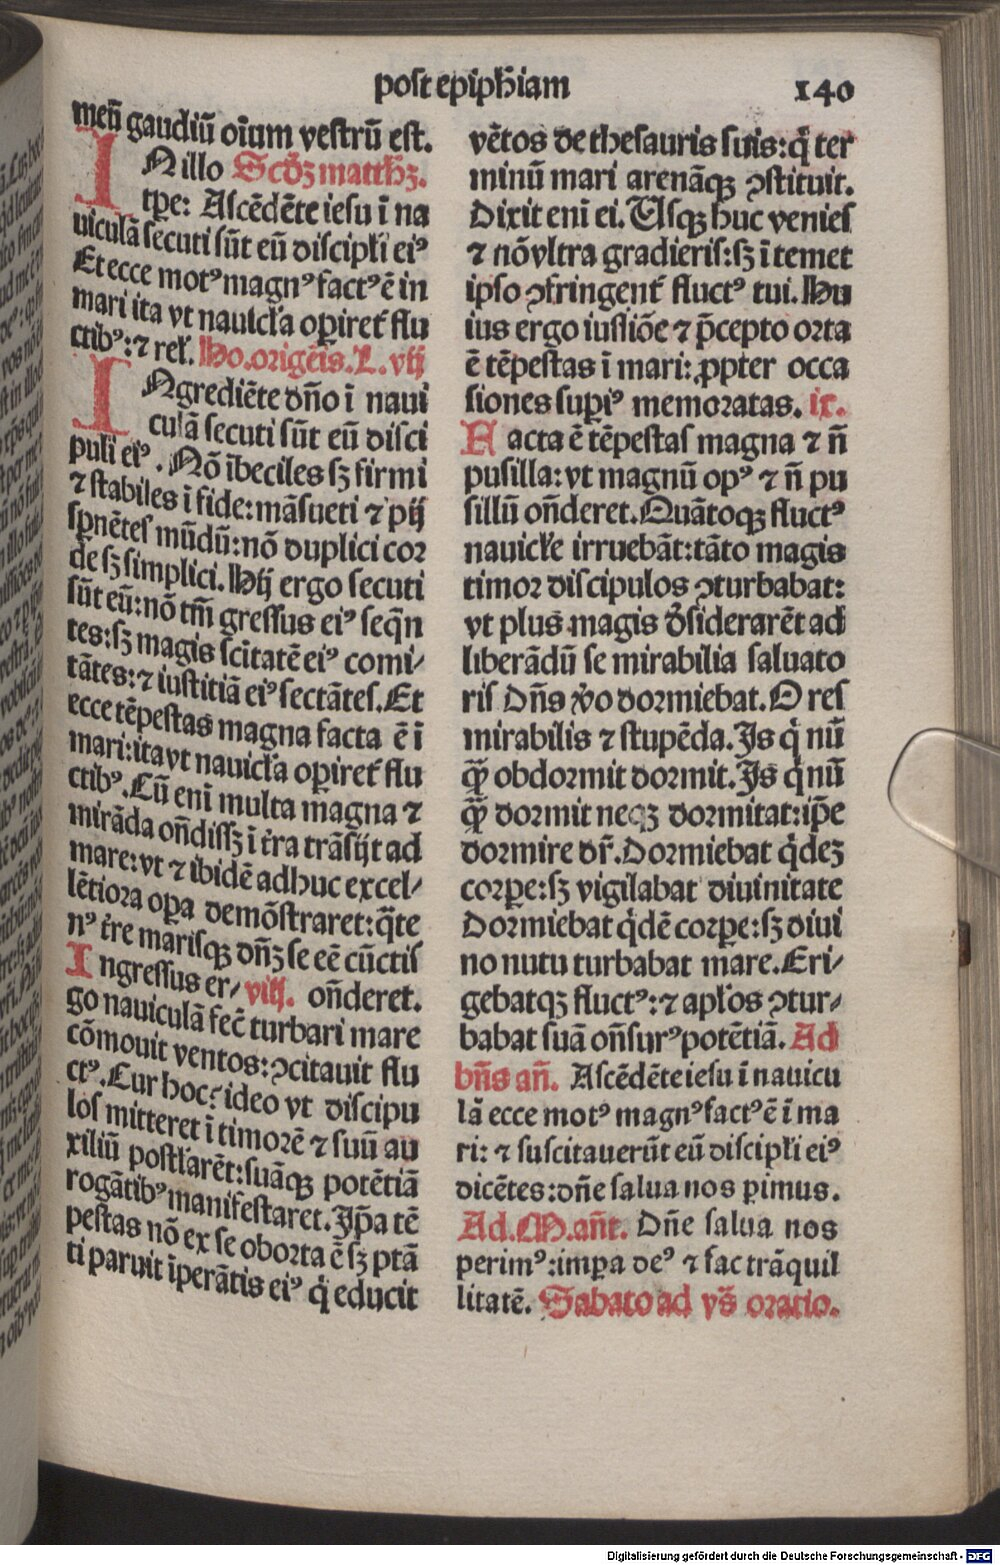 post epiph̄iam
140
men̄ gaudiū oīum vestrū est.
IN illo Scd̄ꝫ matth̄ꝫ.
tꝑe: Ascēdēte iesu ī na
uiculā secuti sūt eū discipl̄i eiꝰ
Et ecce motꝰ magnꝰ factꝰ ē in
mari ita vt nauicl̄a oꝑiret᷑ flu
ctibꝰ: ⁊ rel̄. Ho. origēis. L. vij
INgrediēte dn̄o ī naui
culā secuti sūt eū disci
puli eiꝰ. Nō ībeciles sꝫ firmi
⁊ stabiles ī fide: māsueti ⁊ pij
sꝑnētes mūdū: nō duplici cor
de sꝫ simplici. Hij ergo secuti
sūt eū: nō tm̄ gressus eiꝰ seqn̄
tes: sꝫ magis scītatē eiꝰ comi/
tātes: ⁊ iustitiā eiꝰ sectātes. Et
ecce tēpestas magna facta ē ī
mari: ita vt nauicl̄a oꝑiret᷑ flu
ctibꝰ. Cū enī multa magna ⁊
mirāda on̄disſꝫ ī t̄ra trāsijt ad
mare: vt ⁊ ibidē adhuc excel/
lētiora oꝑa demōstraret: q̄te
nꝰ t̄re marisqꝫ dn̄ꝫ se eē cūctis
Ingressus er/ viij. on̄deret.
go nauiculā fec̄ turbari mare
cōmouit ventos: ꝯcitauit flu
ctꝰ. Cur hoc? ideo vt discipu
los mitteret ī timorē ⁊ suū au
xiliū postl̄arēt: suāqꝫ potētiā
rogātibꝰ manifestaret. Ip̄a tē
pestas nō ex se oborta ē sꝫ ptā
ti paruit īperātis eiꝰ q̇ educit
vētos de thesauris suis: q̇ ter
minū mari arenāqꝫ ꝯstituit.
Dixit eni ei. Usqꝫ huc venies
⁊ nō vltra gradieris: sꝫ ī temet
ipso ꝯfringent᷑ fluctꝰ tui. Hu
ius ergo iussiōe ⁊ p̄cepto orta
ē tēpestas ī mari: ꝓpter occa
siones suꝑiꝰ memoratas. ix.
Facta ē tēpestas magna ⁊ n̄
pusilla: vt magnū opꝰ ⁊ n̄ pu
sillū on̄deret. Quātoqꝫ fluctꝰ
nauicl̄e irruebāt: tāto magis
timor discipulos ꝯturbabat:
vt plus magis d̄siderarēt ad
liberādū se mirabilia saluato
ris Dn̄s v̊o dormiebat. O res
mirabilis ⁊ stupēda. Is q̇ nū
qꝫ̄ obdormit dormit. Is q̇ nū
qꝫ̄ dormit neqꝫ dormitat: ip̄e
dormire dr̄. Dormiebat q̇deꝫ
corꝑe: sꝫ vigilabat diuinitate
Dormiebat q̇dē corꝑe: sꝫ diui
no nutu turbabat mare. Eri/
gebatqꝫ fluctꝰ: ⁊ apl̄os ꝯtur/
babat suā on̄surꝰ potētiā. Ad
bn̄s an̄. Ascēdēte iesu ī nauicu
lā ecce motꝰ magnꝰ factꝰ ē ī ma
ri: ⁊ suscitauerūt eū discipl̄i eiꝰ
dicētes: dn̄e salua nos ꝑimus.
Ad. M. an̄t. Dn̄e salua nos
perimꝰ: imꝑa deꝰ ⁊ fac trāquil
litatē. Sabato ad vs̄ oratio.
Digitalisierung gefördert durch die Deutsche Forschungsgemeinschaft - DFG